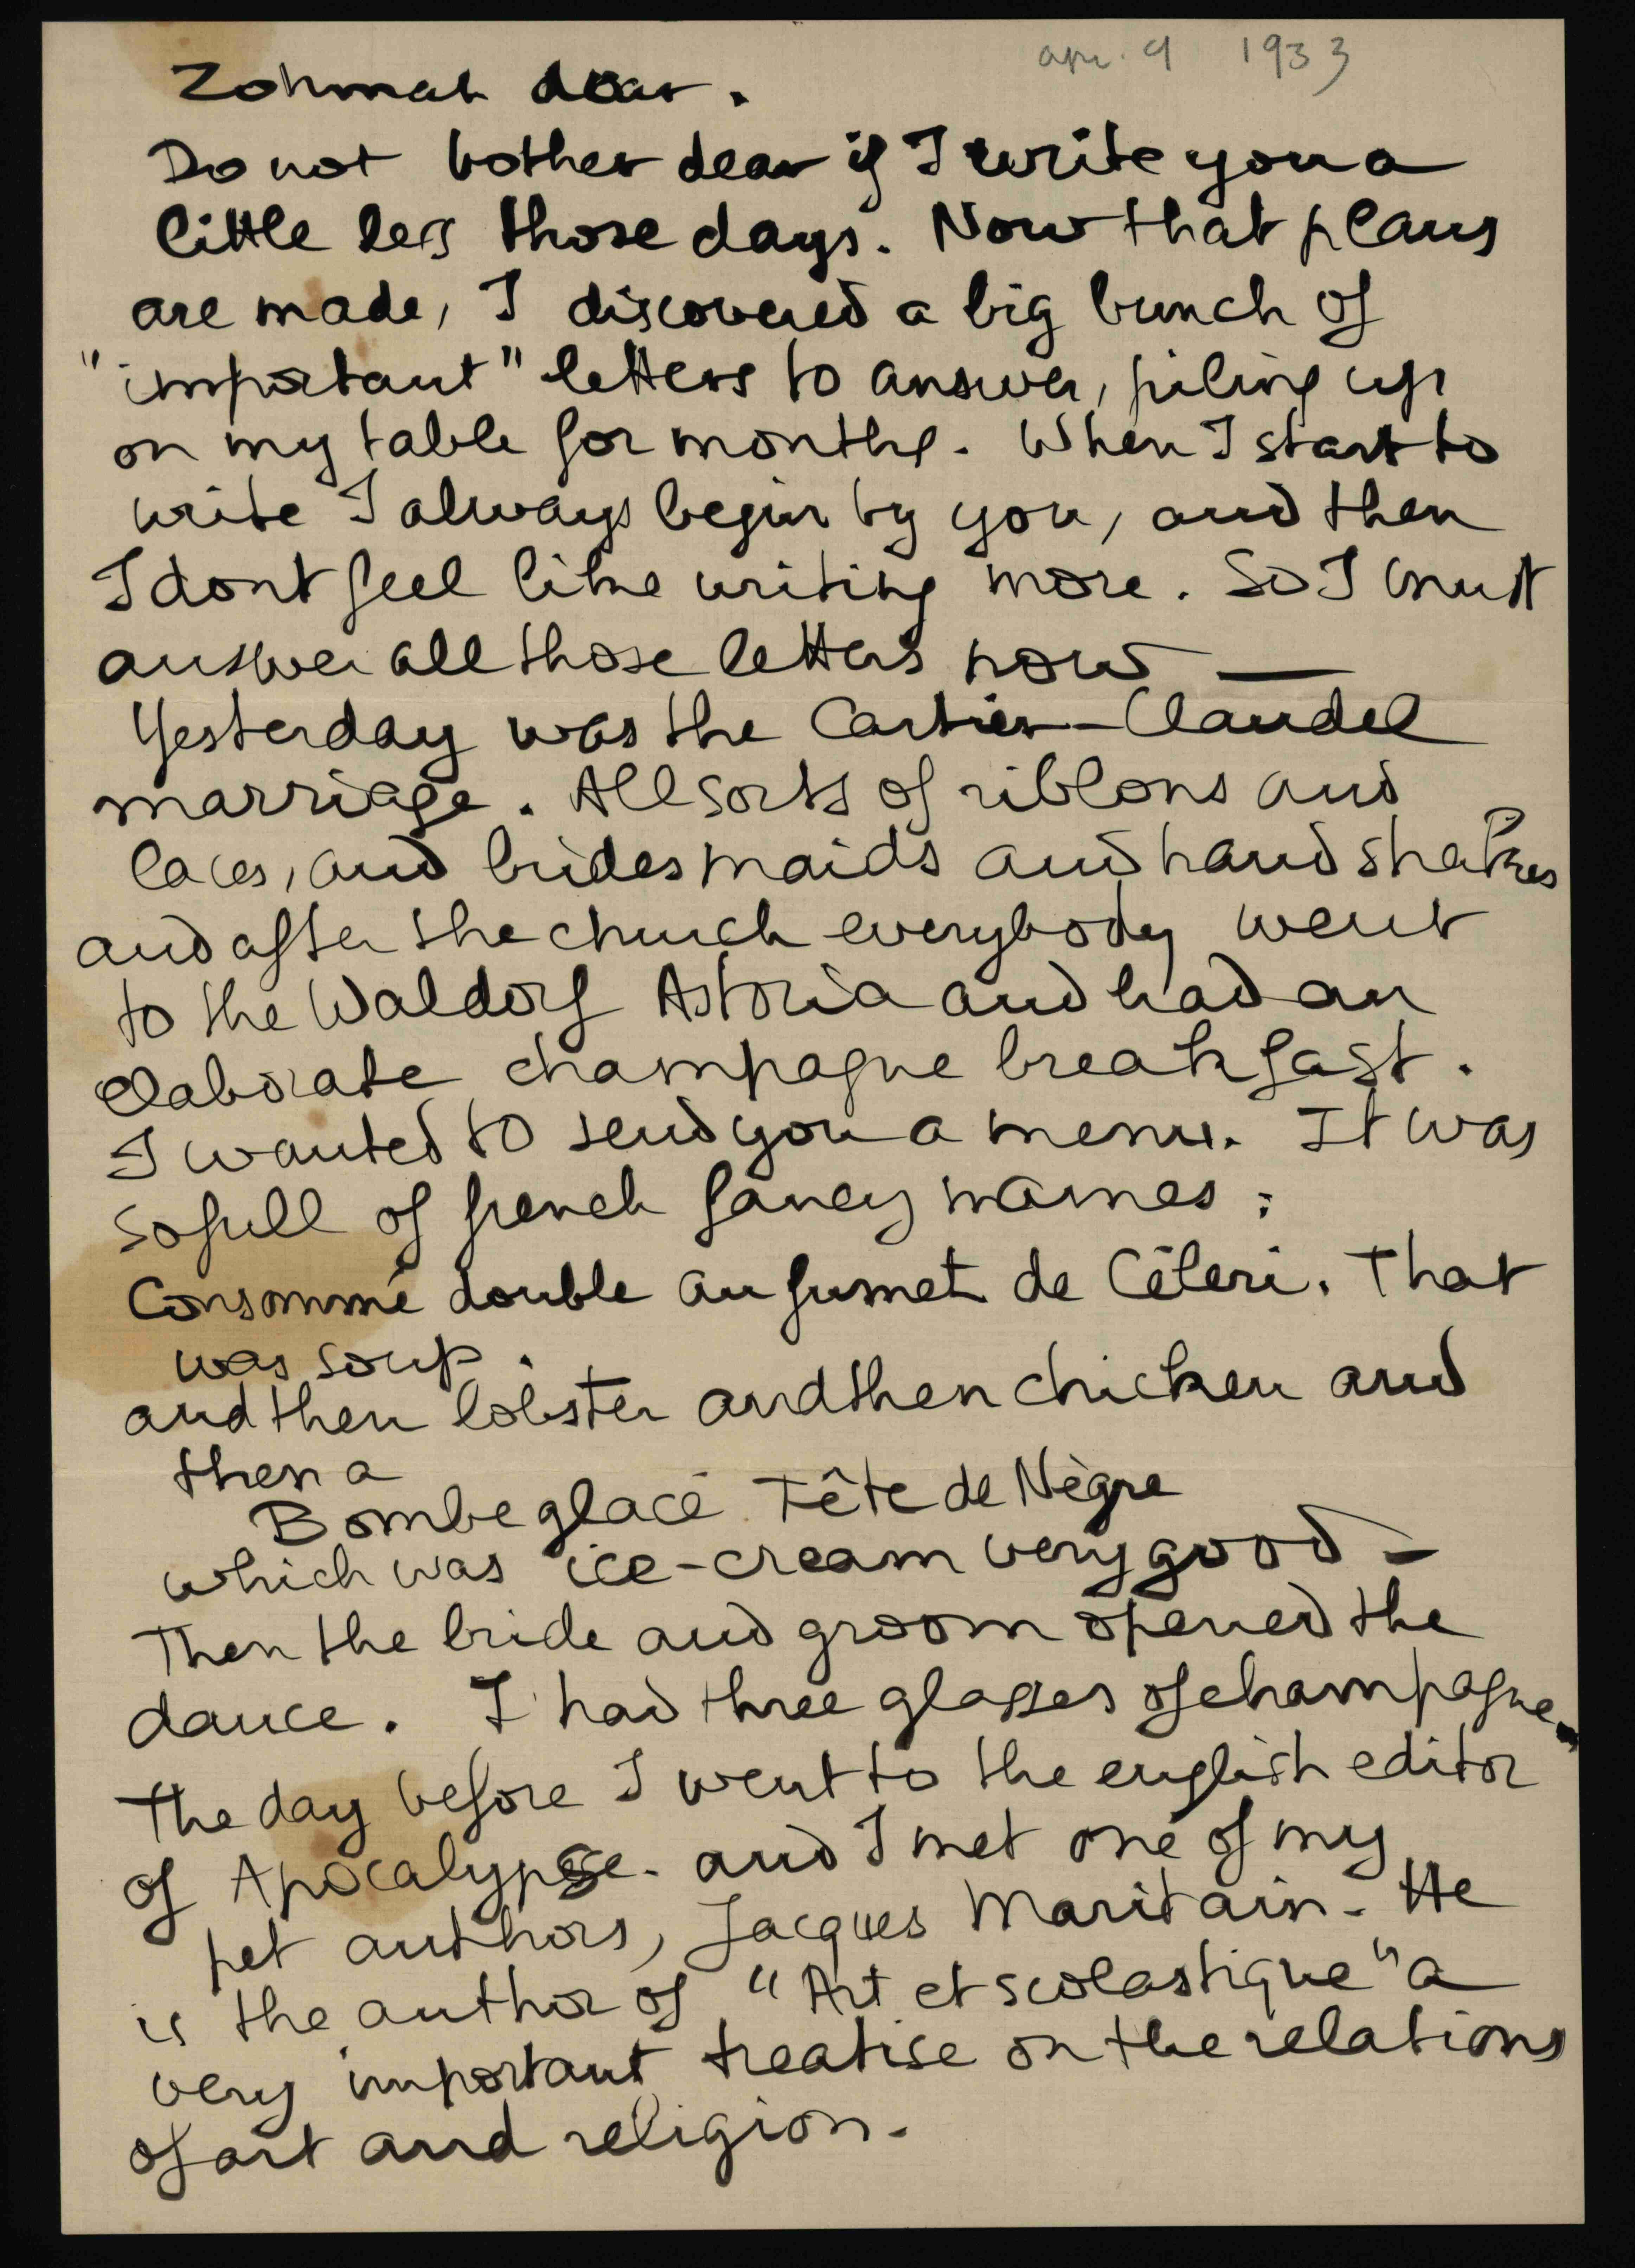 apr. 9 1933
Zohmah dear.
Do not bother dear if I write you a
little less those days. Now that plans
are made, I discovered a big bunch of
"important" letters to answer, piling up
on my table for months. When I start to
write I always begin by you, and then
I dont feel like writing more. So I must
answer all those letters now —
Yesterday was the Cartier-Claudel
marriage. All sorts of ribbons and
laces, and bridesmaids and hand shakes
and after the church everybody went
to the Waldorf Astoria and had an
elaborate champagne breakfast.
I wanted to send you a menu. It was
so full of french fancy names:
Consommé double au fumet de Céleri. That
was soup.
and then lobster and then chicken and
then a
Bombe glacé Tête de Nègre
which was ice-cream very good -
Then the bride and groom opened the
dance. I had three glasses of champagne.
The day before I went to the english editor
of Apocalypse. and I met one of my
pet authors, Jacques Maritain. He
is the author of "Art et scolastique" a
very important treatise on the relations
of art and religion.